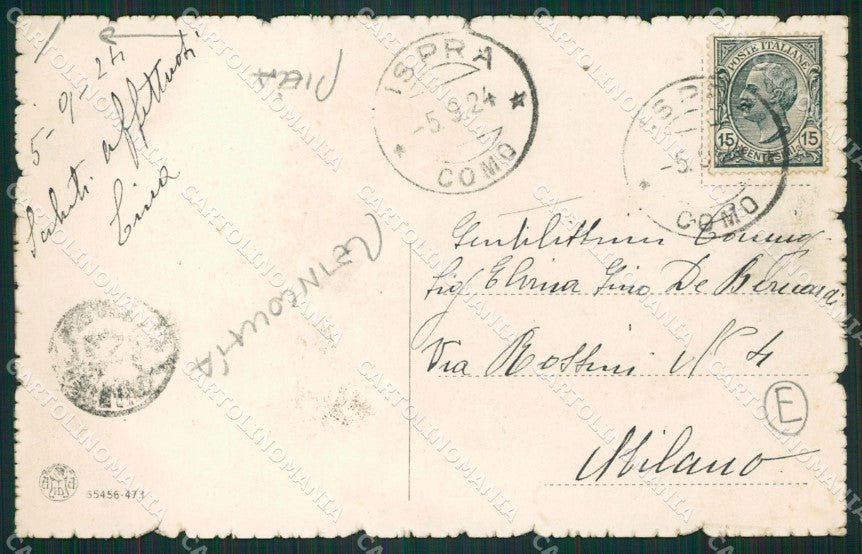 5-9-24
Saluti affettuosi
ISPRA
-5.9.24
COMO
ISPRA
-5.9
COMO
POSTE ITALIANE
15 CENTESIMI 15
Gentilissimi
Sig Elvira Gino De Bernardi
Via Rossini N° 4
Milano
E
55456-473
CARTOLINOMANIA